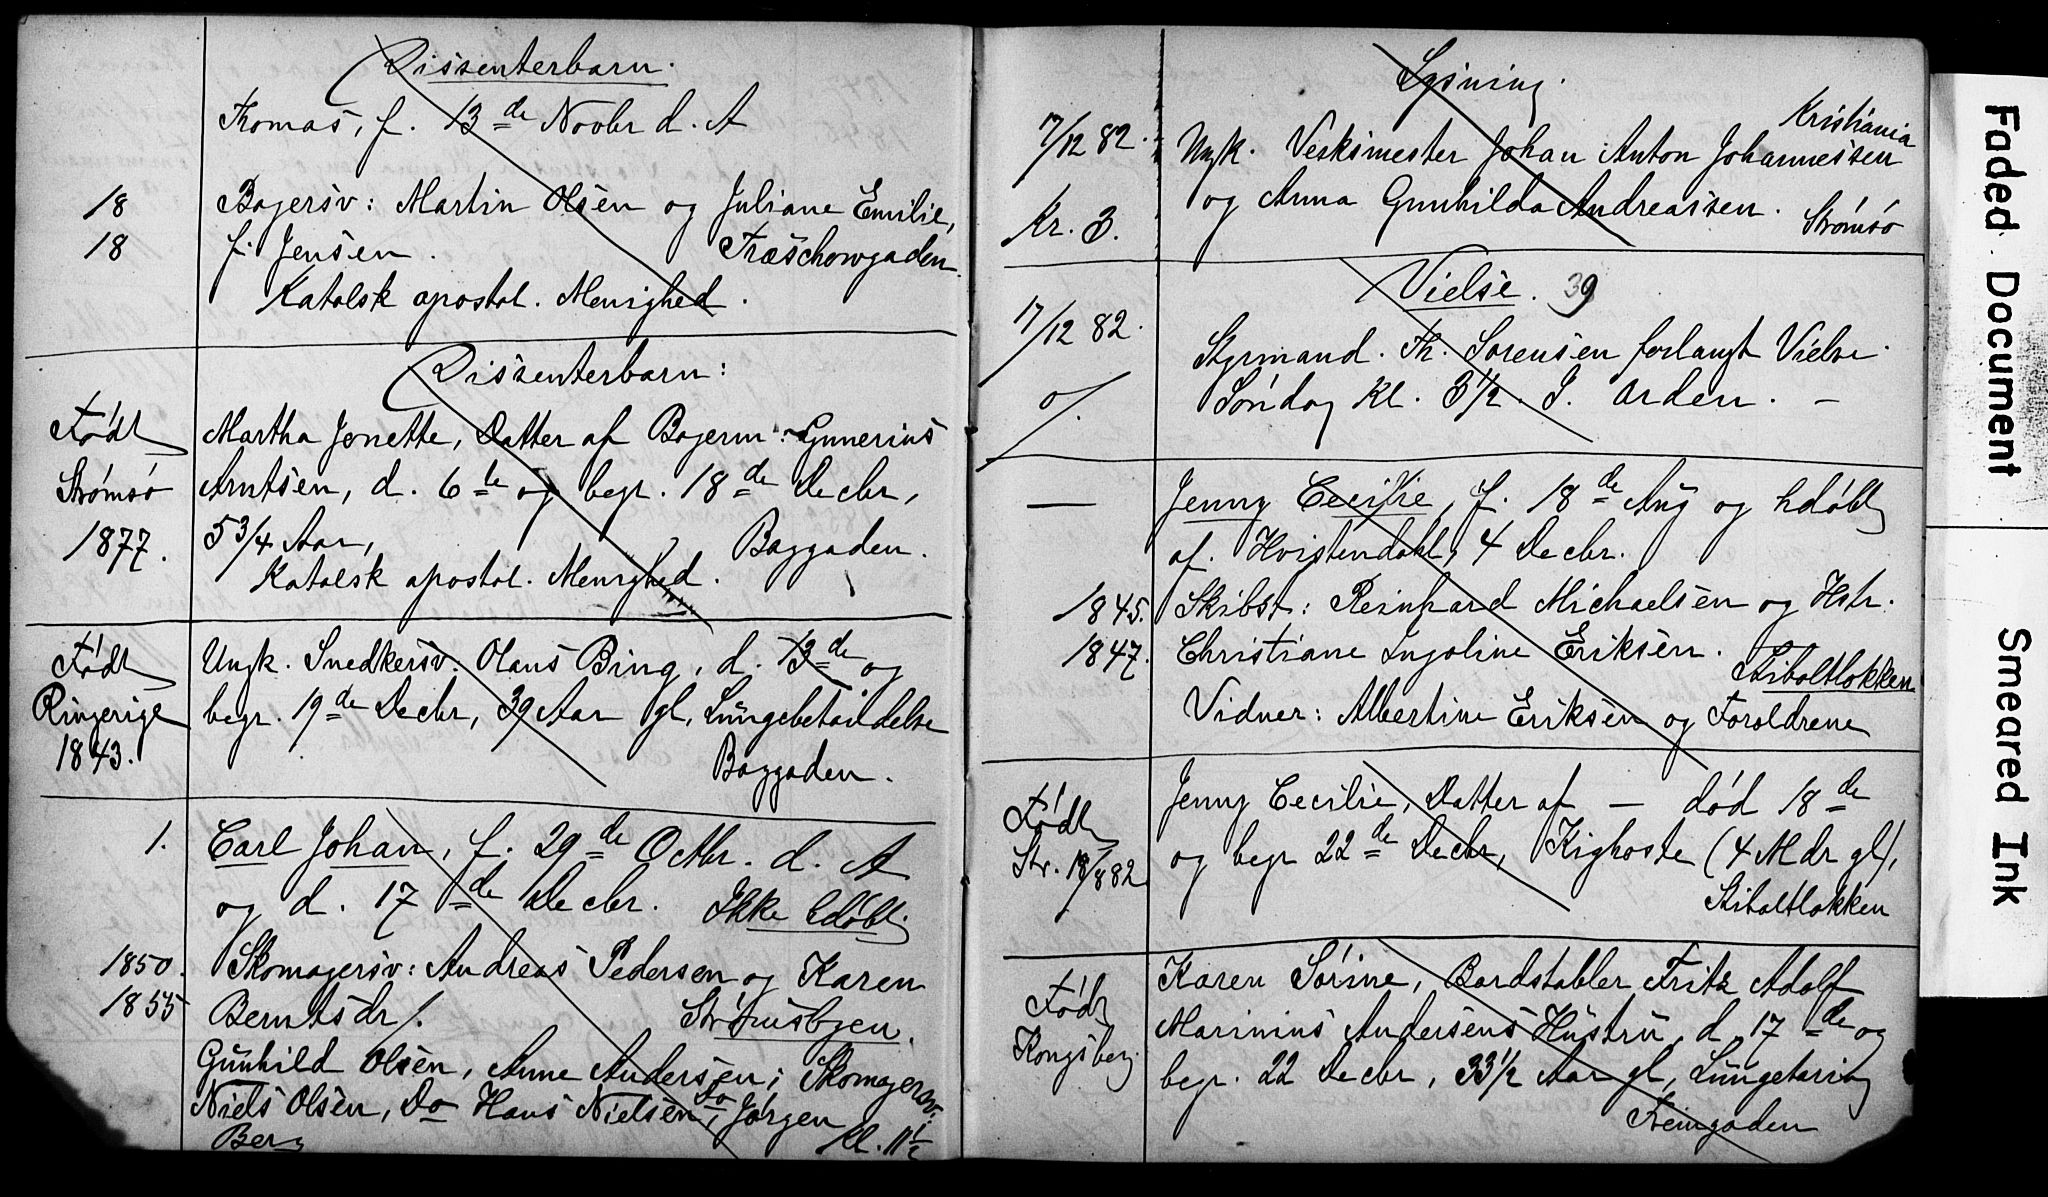 Dissenterbarn.
Thomas, f. 13de Novbr d. A
18 Bagersv: Martin Olsen og Juliane Emilie,
18 f. Jensen. Træschowgaden.
Katolsk apostol. Menighed.
Dissenterbarn:
Født Martha Jonette, Datter af Bagerm: Gunerius
Strømsø Arntsen, d. 6te og begr. 18de Decbr,
1877. 5 3/4 Aar, Baggaden.
Katolsk apostol. Menighed.
Født Ungk. Snedkersv: Olaus Bing, d. 13de og
Ringerige begr. 19de Decbr, 39 Aar gl, Lungebetændelse
1843. Baggaden.
1. Carl Johan, f. 29de Octbr. d. A
og d. 17de Decbr. Ikke hdøbt.
1850. Skomagersv: Andreas Pedersen og Karen
1855 Berntsdr/. Strømsbyen.
Gunhild Olsen, Anne Andersen; Skomagersv:
Niels Olsen, Do Hans Nielsen, Do Jørgen
Berg Kl. 11 1/2
Lysning.
Kristiania
17/12 82. Ungk. Verksmester Johan Anton Johannessen
og Anna Gunhilda Andreassen.
Kr. 3. Strømsø
Vielse. 39
17/12 82.
Styrmand. Th. Sørensen forlangt Vielse
0/. Søndag Kl. 3 1/2. I. Orden. —
— Jenny Cecilie, f. 18de Aug og hdøbt
af. Hvistendahl, 4 Decbr.
1845. Skibst: Reinhard Michaelsen og Hstr.
1847. Christiane Ingoline Eriksen.
Stiboltløkken
Vidner: Albertine Eriksen og Forældrene
Jenny Cecilie, Datter af — død 18de
Født
Str. 18/8 82 og begr 22de Decbr, Kighoste (4 Mdr gl),
Stiboltløkken
Karen Sørine, Bordstabler Fritz Adolf
Født
Marinius Andersens Hustru, d. 17de og
Kongsberg. begr. 22 Decbr, 33 1/2 Aar gl, Lungetæring
Freingaden
Faded Document
Smeared Ink